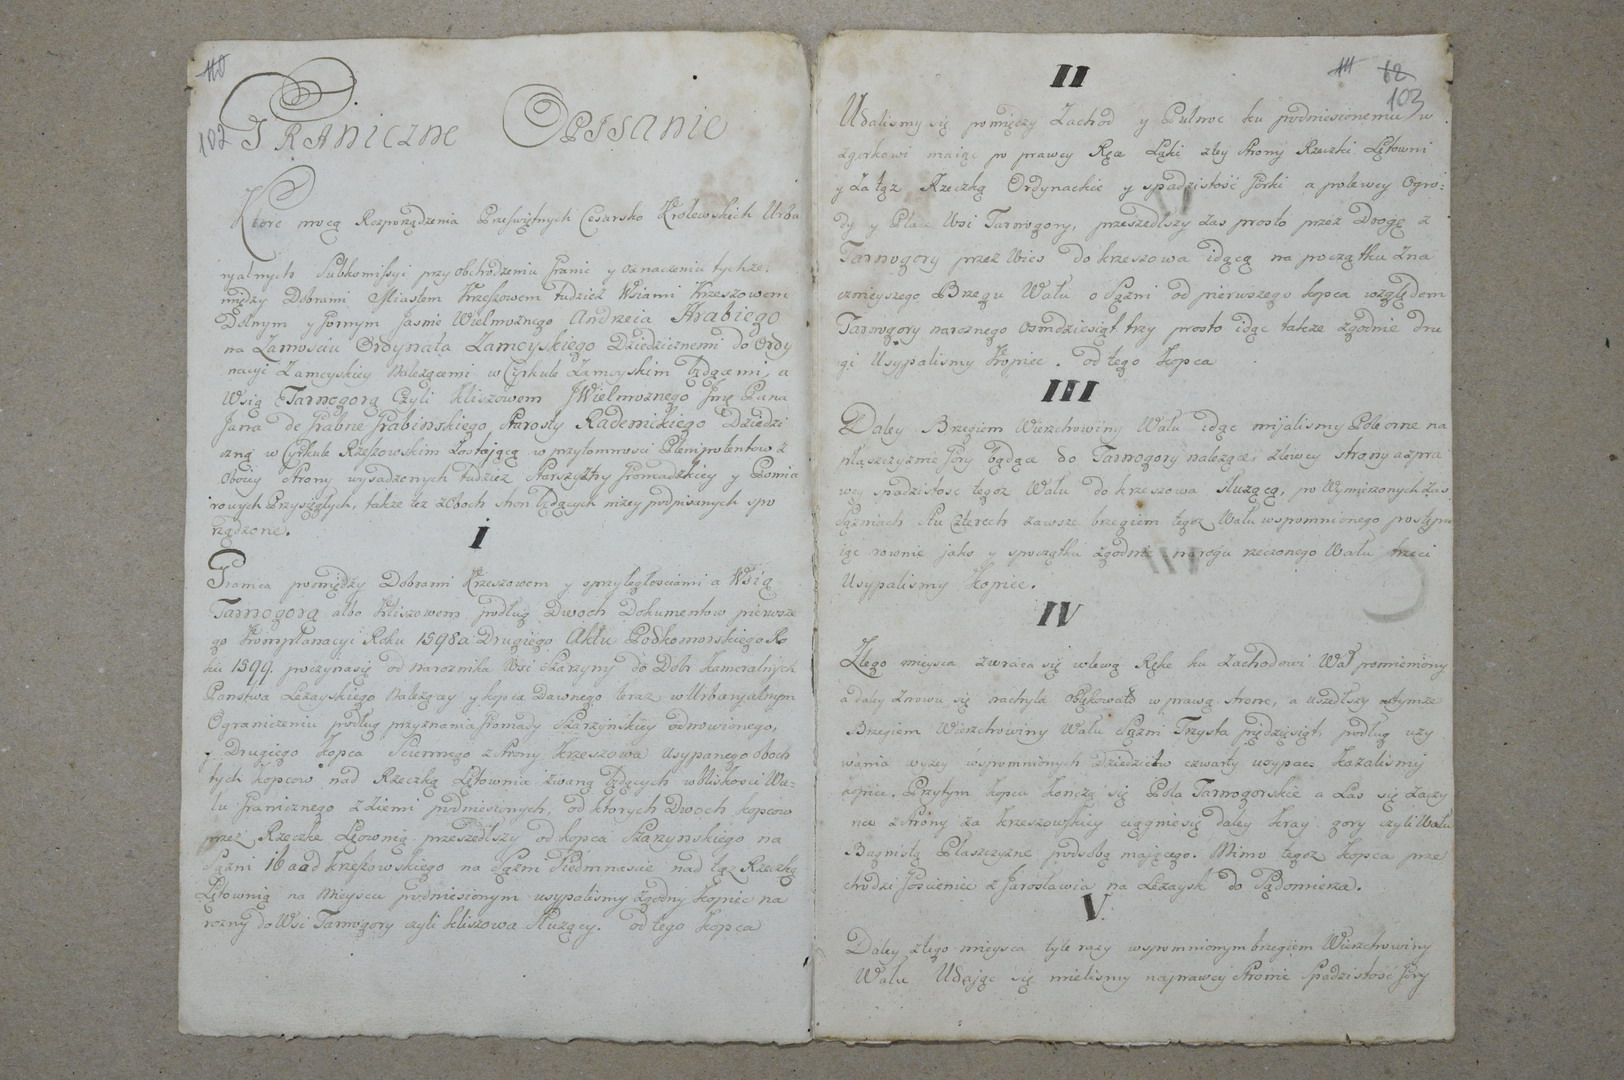 110
102
Graniczne Opisanie
Ktore mocą Rozporządzenia Przeświętnych Cesarsko Krolewskich Urba
ryalnych Subkomissyi przy obchodzeniu Granic y oznaczeniu tychże
między Dobrami Miastem Krzeszowem tudzież Wsiami Krzeszowem
Dolnym y Gornym Jaśnie Wielmożnego Andrzeia Hrabiego
na Zamościu Ordynata Zamoyskiego Dziedzicznemi do Ordy
nacyi Zamoyskiey należącemi w Cyrkule Zamoyskim będącemi, a
Wsią Tarnogorą czyli Kliszowem JWielmożnego Jmę Pana
Jana de Grabne Grabinskiego Starosty Rademickiego Dziedzi
czną w Cyrkule Rzeszowskim Zostaiącą w przytomności Plenipotentow z
Oboiey Strony wysadzonych tudzież Starszyzny Gromadzkiey y Pomia
rowych Przysięgłych, także też z Oboch stron będących niżey podpisanych spo
rządzone.
I
Granica pomiędzy Dobrami Krzeszowem y sprzyległościami a Wsią
Tarnogorą albo Kliszowem podług Dwoch Dokumentow pierwsze
go Komplanacyi Roku 1598 a Drugiego Aktu Podkomorskiego Ro
ku 1599. poczyna się od naroznika Wsi Sarzyny do Dobr Kameralnych
Panstwa Leżayskiego należącey y kopca Dawnego teraz w Urbaryalnym
Ograniczeniu podług przyznania Gromady Sarzyńskiey odnowionego,
y Drugiego Kopca Sciennego z strony Krzeszowa Usypanego oboch
tych kopcow nad Rzeczką Łętownia zwaną będących w bliskości Wa-
łu Granicznego z ziemi podniesionych, od ktorych Dwoch kopcow
przez Rzeczkę Łętownią przeszedłszy od kopca Sarzynskiego na
Sążni 16 a od krzeszowskiego na Sążni Siedmnaście nad tąż Rzeczką
Łętownią na Mieyscu podniesionym usypaliśmy zgodny Kopiec na
rozny do Wsi Tarnogory czyli Kliszowa Służący. od tego Kopca
111 12
103
II
Udaliśmy się pomiędzy Zachod y Pułnoc ku podniesionemu w
zgorkowi maiąc po prawey Ręce Łąki z tey strony Rzeczki Łętowni
y za tąż Rzeczką Ordynackie y spadzistość Gorki a po lewey Ogro:
dy y Place Wsi Tarnogory, przeszedłszy zas prosto przez Drogę z
Tarnogory przez Wieś do krzeszowa idącą na początku Zna
cznieyszego Brzegu Wału o Sążni od pierwszego kopca względem
Tarnogory narożnego Osmdziesiąt trzy prosto idąc także zgodnie dru
gi Usypaliśmy Kopiec. od tego Kopca
III
Daley Brzegiem Wierzchowiny Wału idąc mijaliśmy Pole orne na
płaszczyznie Gory będące do Tarnogory należące, z lewey strony a z pra
wey spadzistość tegoż Wału do krzeszowa służącą, po Wymierzonych zas
Sążniach Stu Czterech zawsze brzegiem tegoż Wału wspomnionego postępu
iąc rownie jako y spoczątku zgodnie na rogu rzeczonego Wału trzeci
Usypaliśmy Kopiec.
IV
Ztego mieysca zwraca się w lewą Rękę ku Zachodowi Wał pomieniony
a daley znowu się nachyla w prawą stronę, a uszedłszy tymże
Brzegiem Wierzchowiny Wału Sążni Trzysta pędziesiąt, podług uży
wania wyżey wspomnionych Dziedzicow czwarty usypać kazaliśmy
kopiec. Przytym Kopcu kończą się Pola Tarnogorskie a Las się Zaczy
na z strony za krzeszowskiey ciągnie się daley kray gory czyli Wału
Bagnistą Płaszczyznę pod sobą maiącego. Mimo tegoż Kopca prze
chodzi Gościeniec z Jarosławia na Leżaysk do Sędomierza.
V
Daley z tego mieysca tyle razy wspomnionym brzegiem Wierzchowiny
Wału Udając się mieliśmy na prawey stronie Spadzistość Gory